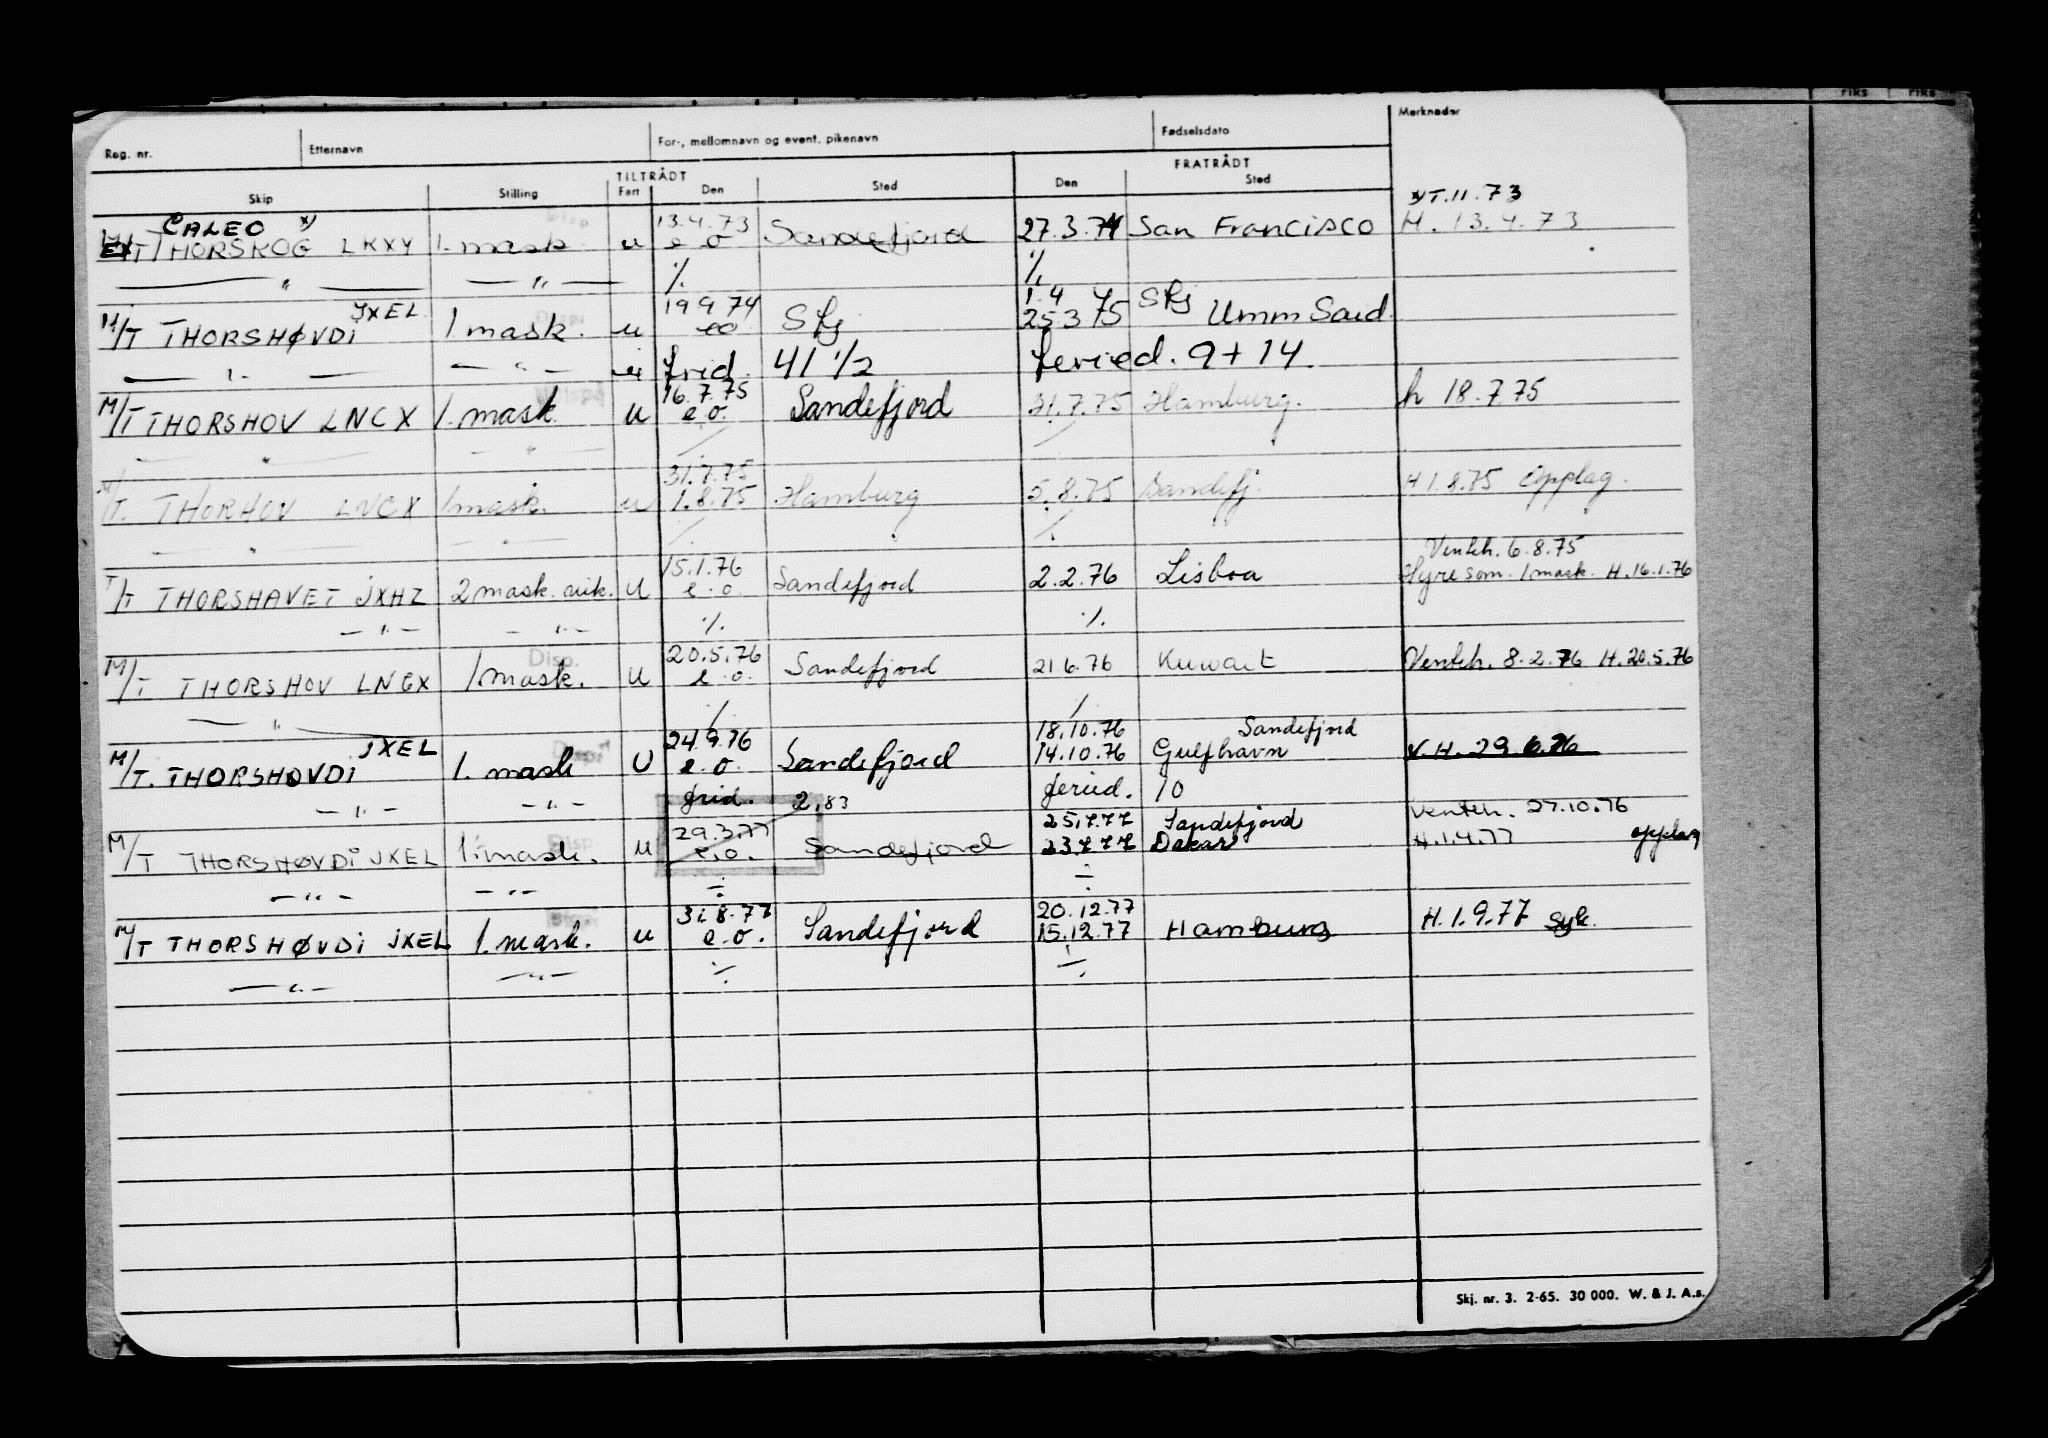 riks riks
Reg. nr. Etternavn For-, mellomnavn og event. pikenavn Fødselsdato Merknader
TILTRÅDT FRATRÅDT
Skip Stilling Fart Den Sted Den Sted
CALEO x) 13.4.73 x) T.11.73
EX M/T THORSKOG LKXY 1. mask u e o Sandefjord 27.3.74 San Francisco H. 13.4.73
— " — — " — ·/. ·/.
JXEL 19 9 74 1.4 Sfj
M/T THORSHØVDI 1 mask. u eo Sfj 25 3 75 Umm Said
— " — — " — u frid. 41 1/2 feried. 9 + 14.
16.7.75
M/T THORSHOV LNCX 1. mask u e.o. Sandefjord 31.7.75 Hamburg. h 18.7.75
— " — — " — ·/. ·/.
31.7.75
M/T. THORHOV LNCX 1 mask. u 1.8.75 Hamburg 5.8.75 Sandefj. H 1.8.75 Opplag.
— " — — " — ·/. ·/.
15.1.76 Venteh. 6.8.75
T/T THORSHAVET JXHZ 2 mask. vik. U e.o. Sandefjord 2.2.76 Lisboa Hyre som. 1 mask. H. 16.1.76
— " — — " — ·/. ·/.
Disp. 20.5.76
M/T THORSHOV LNCX 1 mask. U e.o. Sandefjord 21 6.76 Kuwait Venteh. 8.2.76 H. 20.5.76
— " — ·/. ·/.
JXEL 24.9.76 18.10.76 Sandefjord
M/T. THORSHØVDI 1. mask U e.o. Sandefjord 14.10.76 Gulfhavn V.H. 29.6.76
— " — — " — frid. 2,83 feried. 10
29.3.77 25.7.77 Sandefjord Venteh. 27.10.76
M/T THORSHØVDI JXEL 1. mask. u e.o. Sandefjord 23.7.77 Dakar H.1.4.77 opplag
— " — — " — ·/. ·/.
31.8.77 20.12.77
M/T THORSHØVDI JXEL 1. mask. u e.o. Sandefjord 15.12.77 Hamburg H.1.9.77 syk.
— " — — " — ·/. ·/.
Skj. nr. 3. 2-65. 30 000. W. & J. A.s.